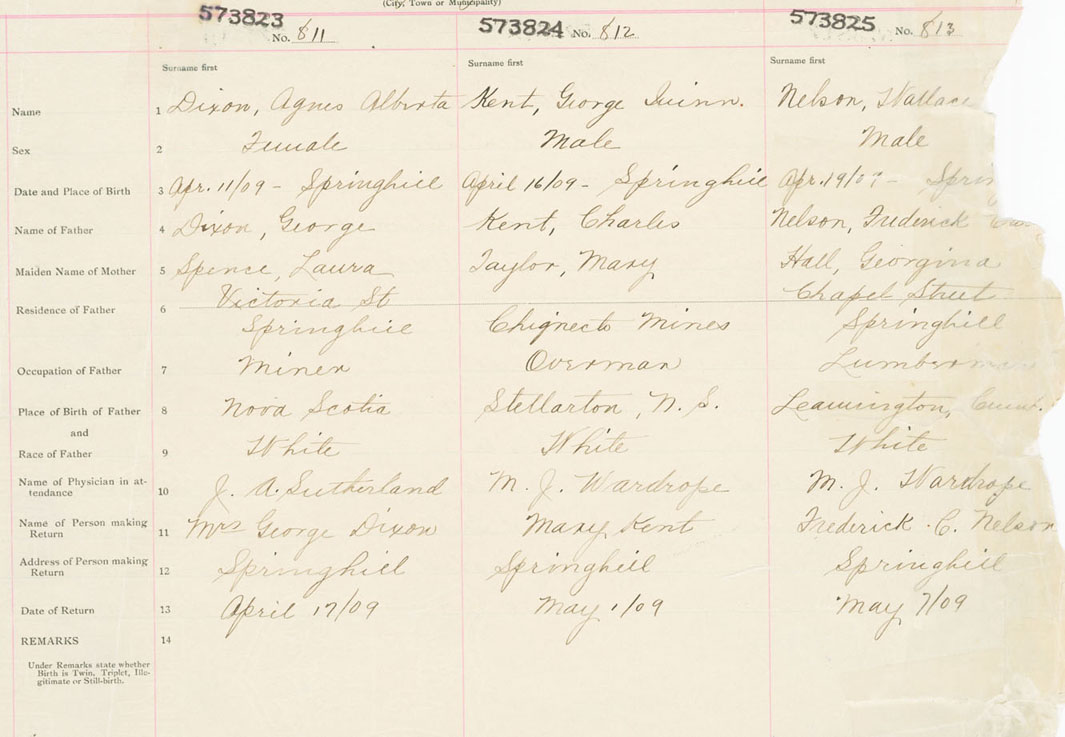 (City, Town or Municipality)
573823 No. 811 573824 No. 812 573825 No. 813
Surname first Surname first Surname first
Name 1 Dixon, Agnes Alberta Kent, George Nelson, Wallace
Sex 2 Female Male Male
Date and Place of Birth 3 Apr. 11/09 - Springhill April 16/09 - Springhill Apr. 19/09 - Sprin
Name of Father 4 Dixon, George Kent, Charles Nelson, Frederick
Maiden Name of Mother 5 Spence, Laura Taylor, Mary Hall, Georgina
Victoria St Chapel Street
Residence of Father 6 Springhill Chignecto Mines Springhill
Occupation of Father 7 Miner Overman Lumberman
Place of Birth of Father 8 Nova Scotia Stellarton, N. S. Leamington, Cumb.
and
Race of Father 9 White White White
Name of Physician in at-
tendance 10 J. A. Sutherland M. J. Wardrope M. J. Wardrope
Name of Person making
Return 11 Mrs George Dixon Mary Kent Frederick C. Nelson
Address of Person making
Return 12 Springhill Springhill Springhill
Date of Return 13 April 17/09 May 1/09 May 7/09
REMARKS 14
Under Remarks state whether
Birth is Twin, Triplet, Ille-
gitimate or Still-birth.